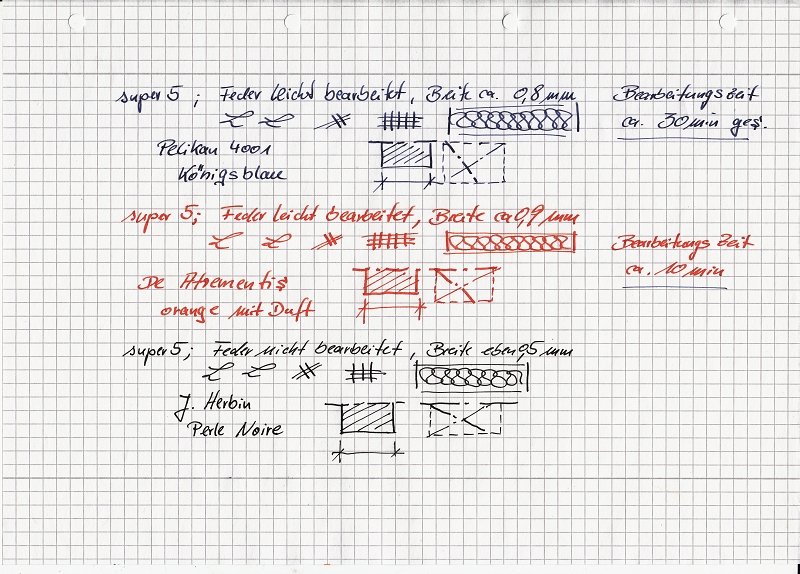 super 5; Feder leicht bearbeitet, Breite ca. 0,8 mm
Bearbeitungszeit
ca. 30 min ges.
Pelikan 4001
Königsblau
super 5; Feder leicht bearbeitet, Breite ca 0,9 mm
Bearbeitungszeit
ca. 10 min
De Atrementis
orange mit Duft
super 5; Feder nicht bearbeitet, Breite eben 0,5 mm
J. Herbin
Perle Noire